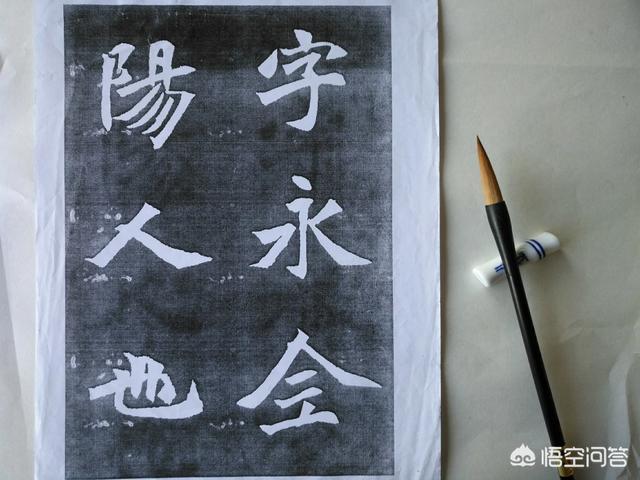 字永仝
陽人也
悟空问答